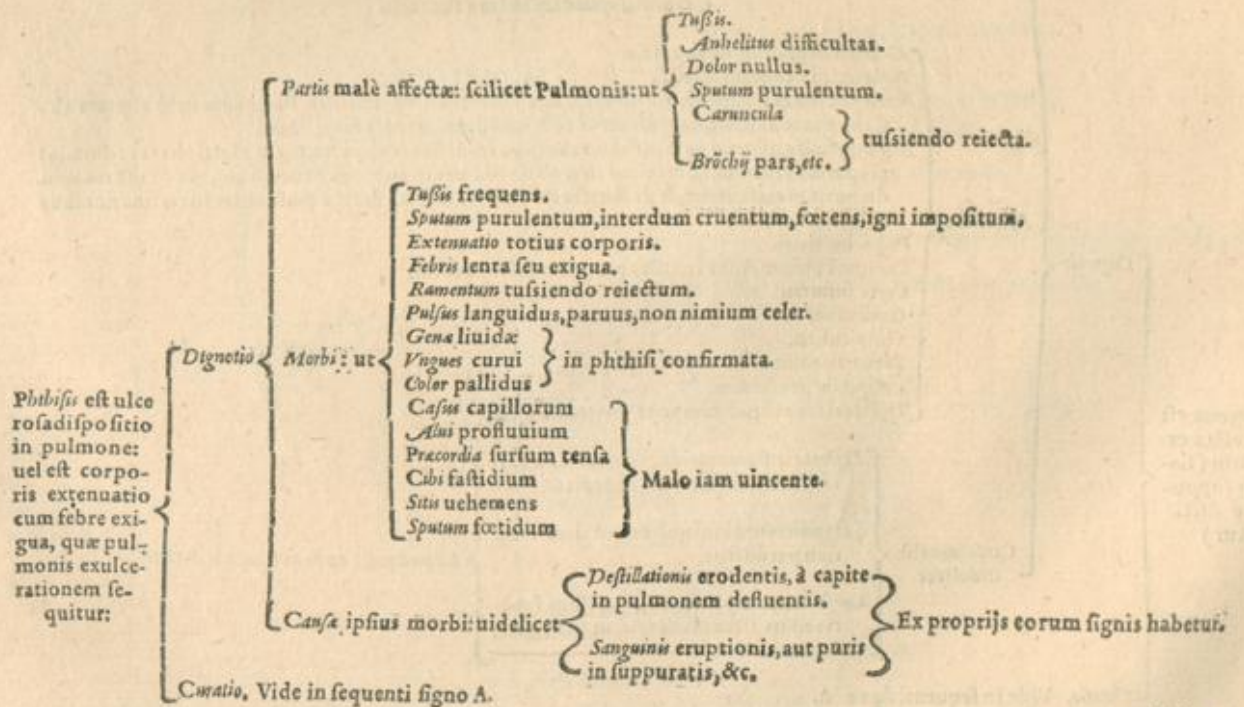 Phthisis est ulce
rosa dispositio
in pulmone:
uel est corpo-
ris extenuatio
cum febre exi-
gua, quæ pul-
monis exulce-
rationem se-
quitur:
Dignotio
Partis malè affectæ: scilicet Pulmonis: ut
Tußis.
Anhelitus difficultas.
Dolor nullus.
Sputum purulentum.
Caruncula
Brõchij pars, etc.
tussiendo reiecta.
Morbi: ut
Tußis frequens.
Sputum purulentum, interdum cruentum, fœtens, igni impositum,
Extenuatio totius corporis.
Febris lenta seu exigua.
Ramentum tussiendo reiectum.
Pulsus languidus, paruus, non nimium celer.
Genæ liuidæ
Vngues curui
Color pallidus
in phthisi confirmata.
Casus capillorum
Alui profluuium
Præcordia sursum tensa
Cibi fastidium
Sitis uehemens
Sputum fœtidum
Malo iam uincente.
Causæ ipsius morbi: uidelicet
Destillationis erodentis, à capite
in pulmonem defluentis.
Sanguinis eruptionis, aut puris
in suppuratis, &c.
Ex proprijs eorum signis habetur.
Curatio. Vide in sequenti signo A.